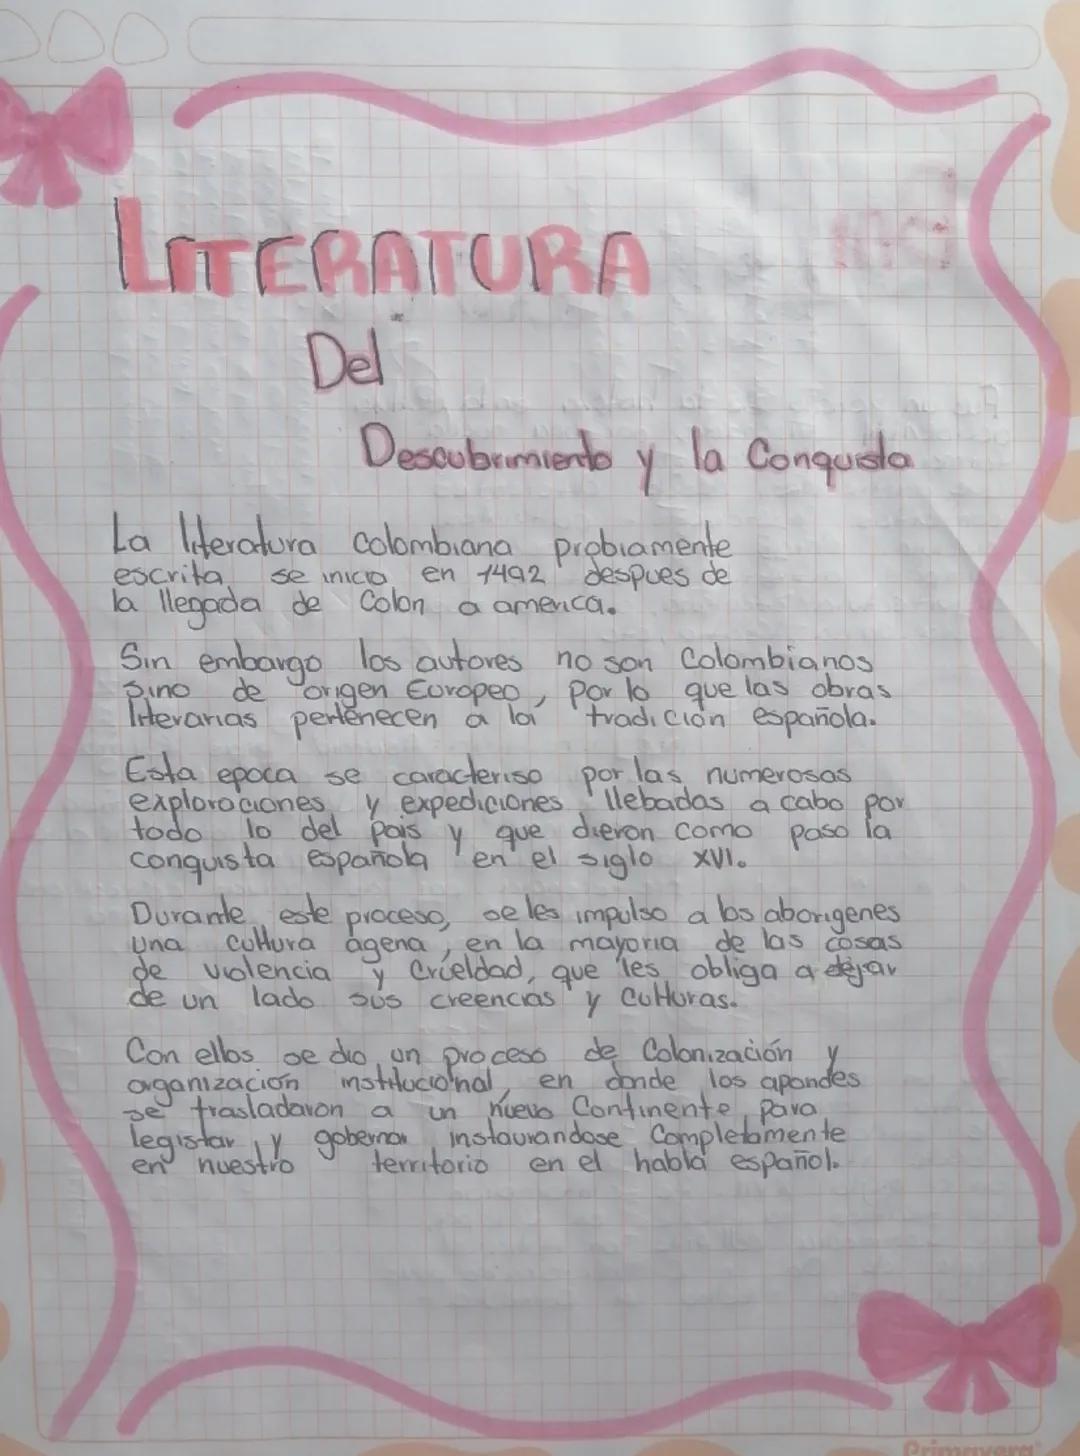 LITERATURA
Del
Descubrimiento y la Conquista
La literatura Colombiana probiamente
escrita se inicio en 1492 despues de
la llegada de Colon a america.
Sin embargo los autores no son Colombianos
sino de origen Europeo, por lo que las obras
literarias pertenecen a la tradición española.
Esta epoca se caracteriso por las numerosas
exploraciones y expediciones llebadas a cabo por
todo lo del pais y que dieron como paso la
conquista española en el siglo XVI.
Durante este proceso, se les impulso a los aborigenes
una cultura agena, en la mayoria de las cosas
de violencia y Crueldad, que les obliga a dejar
de un lado sus creencias y culturas.
Con ellos se dio un proceso de Colonización y
organización institucional, en donde los apondes
se trasladaron a un nuevo Continente para
legistar y gobernar instaurandose Completamente
en nuestro territorio en el habla español.
Primavera